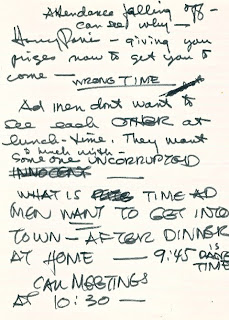 Attendance falling off -
can see why -
Henry Paris - giving you
prizes now to get you to
come - WRONG TIME
Ad men dont want to
see each OTHER at
lunch-time. They want
to lunch with
some one UNCORRUPTED
INNOCENT
WHAT IS TIME AD
MEN WANT TO GET INTO
TOWN - AFTER DINNER
AT HOME - 9:45 IS
TIME
CALL MEETINGS
AT 10:30 -